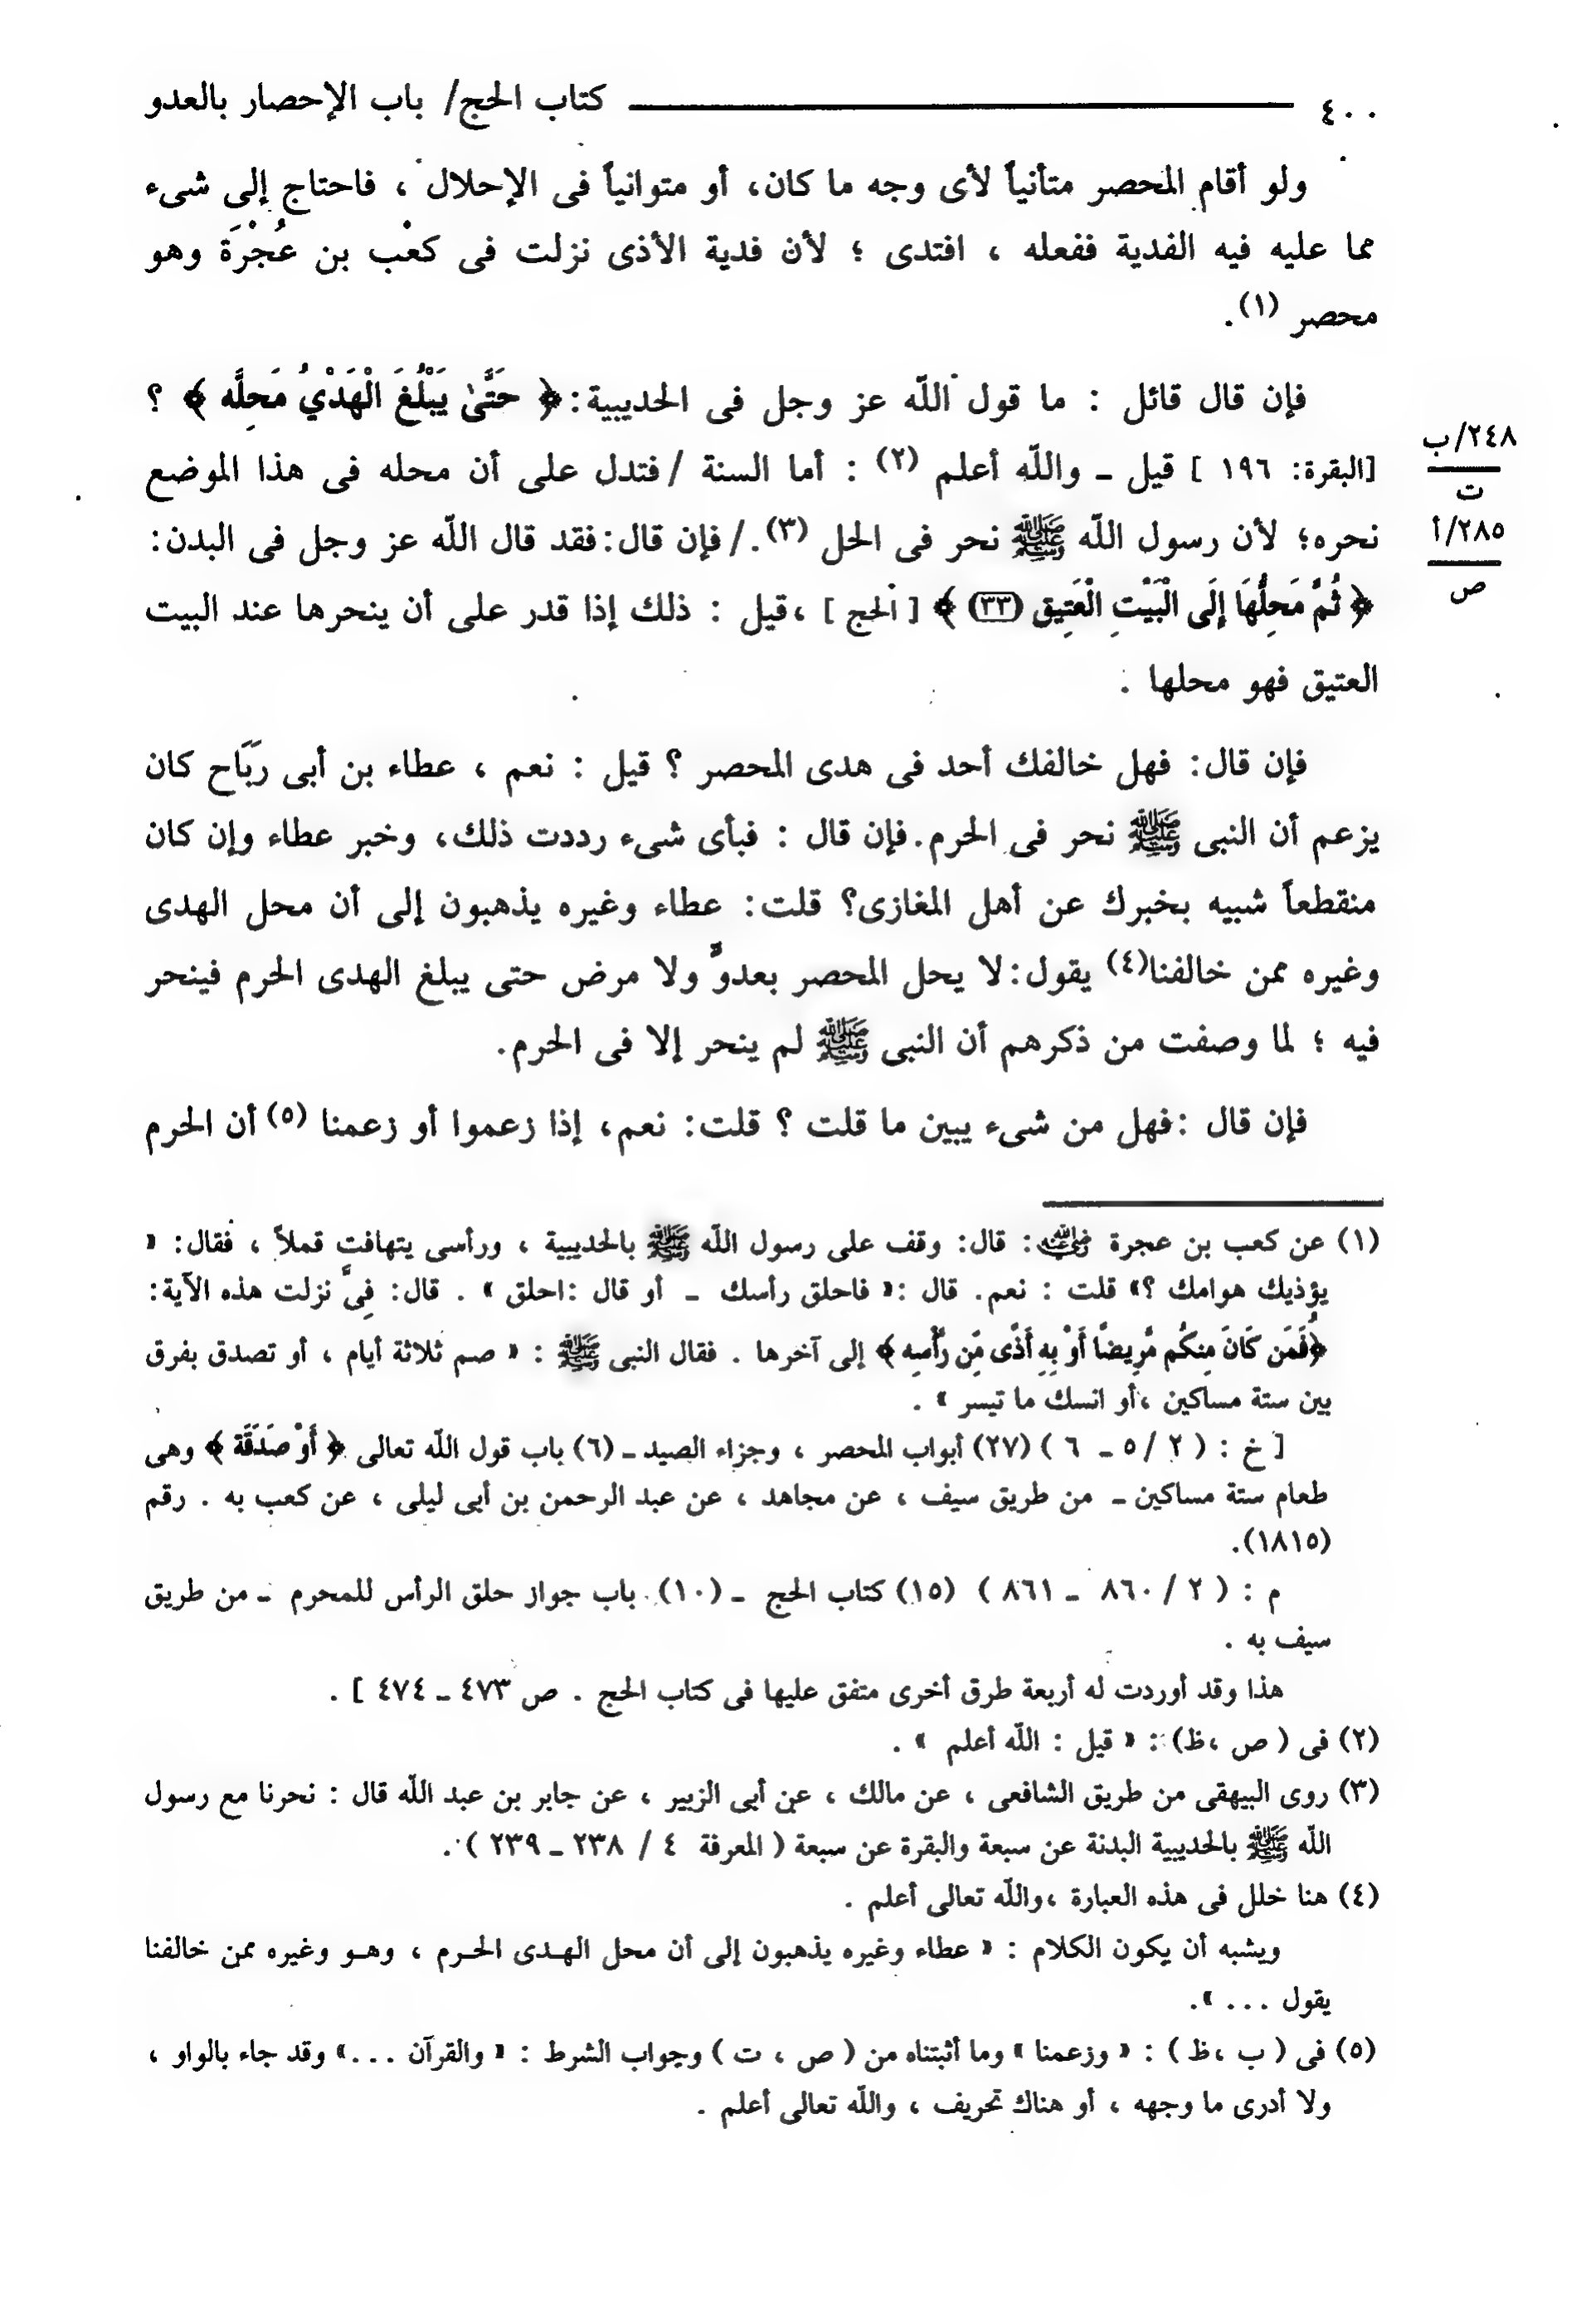 ٤٠٠ كتاب الحج/ باب الإحصار بالعدو
ولو أقام المحصر متأنياً لأى وجه ما كان، أو متوانياً فى الإحلال ، فاحتاج إلى شىء
مما عليه فيه الفدية ففعله ، افتدى ؛ لأن فدية الأذى نزلت فى كعْب بن عُجْرَة وهو
محصر (١).
فإن قال قائل : ما قول اللّه عز وجل فى الحديبية:﴿ حَتَّىٰ يَبْلُغَ الْهَدْيُ مَحِلَّه ﴾ ؟
[البقرة: ١٩٦ ] قيل ـ واللّه أعلم (٢) : أما السنة /فتدل على أن محله فى هذا الموضع
نحره؛ لأن رسول اللّه ﷺ نحر فى الحل (٣)./ فإن قال:فقد قال اللّه عز وجل فى البدن:
﴿ ثُمَّ مَحِلُّهَا إِلَى الْبَيْتِ الْعَتِيقِ (٣٣) ﴾ [ الحج ] ،قيل : ذلك إذا قدر على أن ينحرها عند البيت
العتيق فهو محلها .
٢٤٨/ب
ت
٢٨٥/أ
ص
فإن قال: فهل خالفك أحد فى هدى المحصر ؟ قيل : نعم ، عطاء بن أبى رَبَاح كان
يزعم أن النبى ﷺ نحر فى الحرم. فإن قال : فبأى شىء رددت ذلك، وخبر عطاء وإن كان
منقطعاً شبيه بخبرك عن أهل المغازى؟ قلت: عطاء وغيره يذهبون إلى أن محل الهدى
وغيره ممن خالفنا(٤) يقول:لا يحل المحصر بعدوٍّ ولا مرض حتى يبلغ الهدى الحرم فينحر
فيه ؛ لما وصفت من ذكرهم أن النبى ﷺ لم ينحر إلا فى الحرم.
فإن قال :فهل من شىء يبين ما قلت ؟ قلت: نعم، إذا زعموا أو زعمنا (٥) أن الحرم
(١) عن كعب بن عجرة رضي الله عنه: قال: وقف على رسول اللّه ﷺ بالحديبية ، ورأسى يتهافت قملاً ، فقال: «
يؤذيك هوامك ؟» قلت : نعم. قال :« فاحلق رأسك ـ أو قال :احلق » . قال: فِىَّ نزلت هذه الآية:
﴿فَمَن كَانَ مِنكُم مَّرِيضًا أَوْ بِهِ أَذًى مِّن رَّأْسِه ﴾ إلى آخرها . فقال النبى ﷺ : « صم ثلاثة أيام ، أو تصدق بفرق
بين ستة مساكين ،أو انسك ما تيسر » .
[ خ : ( ٢ /٥ ـ ٦ ) (٢٧) أبواب المحصر ، وجزاء الصيد ـ (٦) باب قول اللّه تعالى ﴿ أَوْ صَدَقَة ﴾ وهى
طعام ستة مساكين ـ من طريق سيف ، عن مجاهد ، عن عبد الرحمن بن أبى ليلى ، عن كعب به . رقم
(١٨١٥).
م : ( ٢ / ٨٦٠ ـ ٨٦١ ) (١٥) كتاب الحج ـ (١٠) باب جواز حلق الرأس للمحرم ـ من طريق
سيف به .
هذا وقد أوردت له أربعة طرق أخرى متفق عليها فى كتاب الحج . ص ٤٧٣ ـ ٤٧٤ ] .
(٢) فى ( ص ،ظ) : « قيل : اللّه أعلم » .
(٣) روى البيهقى من طريق الشافعى ، عن مالك ، عن أبى الزبير ، عن جابر بن عبد اللّه قال : نحرنا مع رسول
اللّه ﷺ بالحديبية البدنة عن سبعة والبقرة عن سبعة ( المعرفة ٤ / ٢٣٨ ـ ٢٣٩ ) .
(٤) هنا خلل فى هذه العبارة ،واللّه تعالى أعلم .
ويشبه أن يكون الكلام : « عطاء وغيره يذهبون إلى أن محل الهـدى الحـرم ، وهـو وغيره ممن خالفنا
يقول ... ».
(٥) فى ( ب ،ظ ) : « وزعمنا » وما أثبتناه من ( ص ، ت ) وجواب الشرط : « والقرآن ...» وقد جاء بالواو ،
ولا أدرى ما وجهه ، أو هناك تحريف ، واللّه تعالى أعلم .